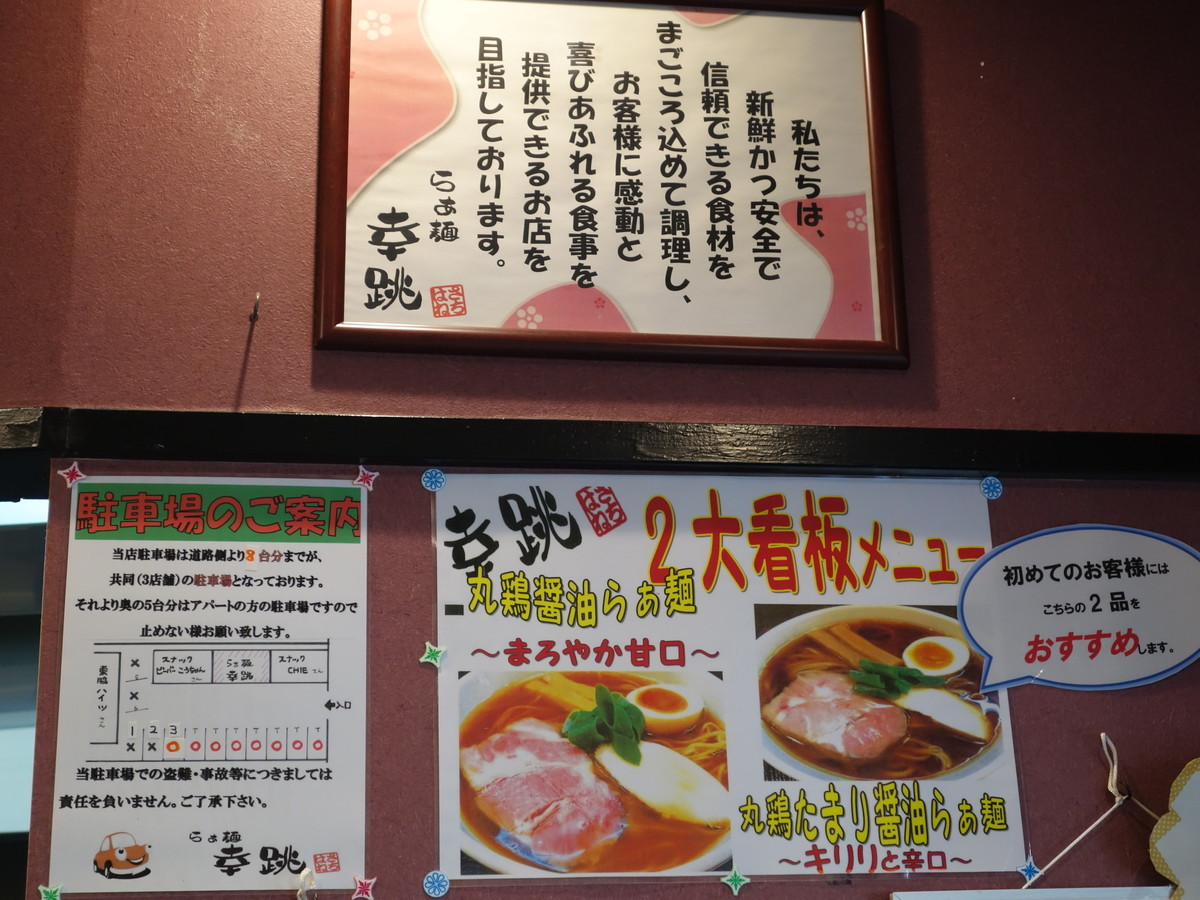 私たちは、
新鮮かつ安全で
信頼できる食材を
まごころ込めて調理し、
お客様に感動と
喜びあふれる食事を
提供できるお店を
目指しております。
らぁ麺
幸跳
さちはね
駐車場のご案内
当店駐車場は道路側より8台分までが、
共同(3店舗)の駐車場となっております。
それより奥の5台分はアパートの方の駐車場ですので
止めない様お願い致します。
東脇ハイツさん
スナック
ピーパーこうちゃん
さん
らぁ麺
幸跳
スナック
CHIE さん
入口
1 2 3
当駐車場での盗難・事故等につきましては
責任を負いません。ご了承下さい。
らぁ麺
幸跳
さちはね
幸跳
さちはね
2大看板メニュー
丸鶏醤油らぁ麺
～まろやか甘口～
丸鶏たまり醤油らぁ麺
～キリリと辛口～
初めてのお客様には
こちらの2品を
おすすめします。